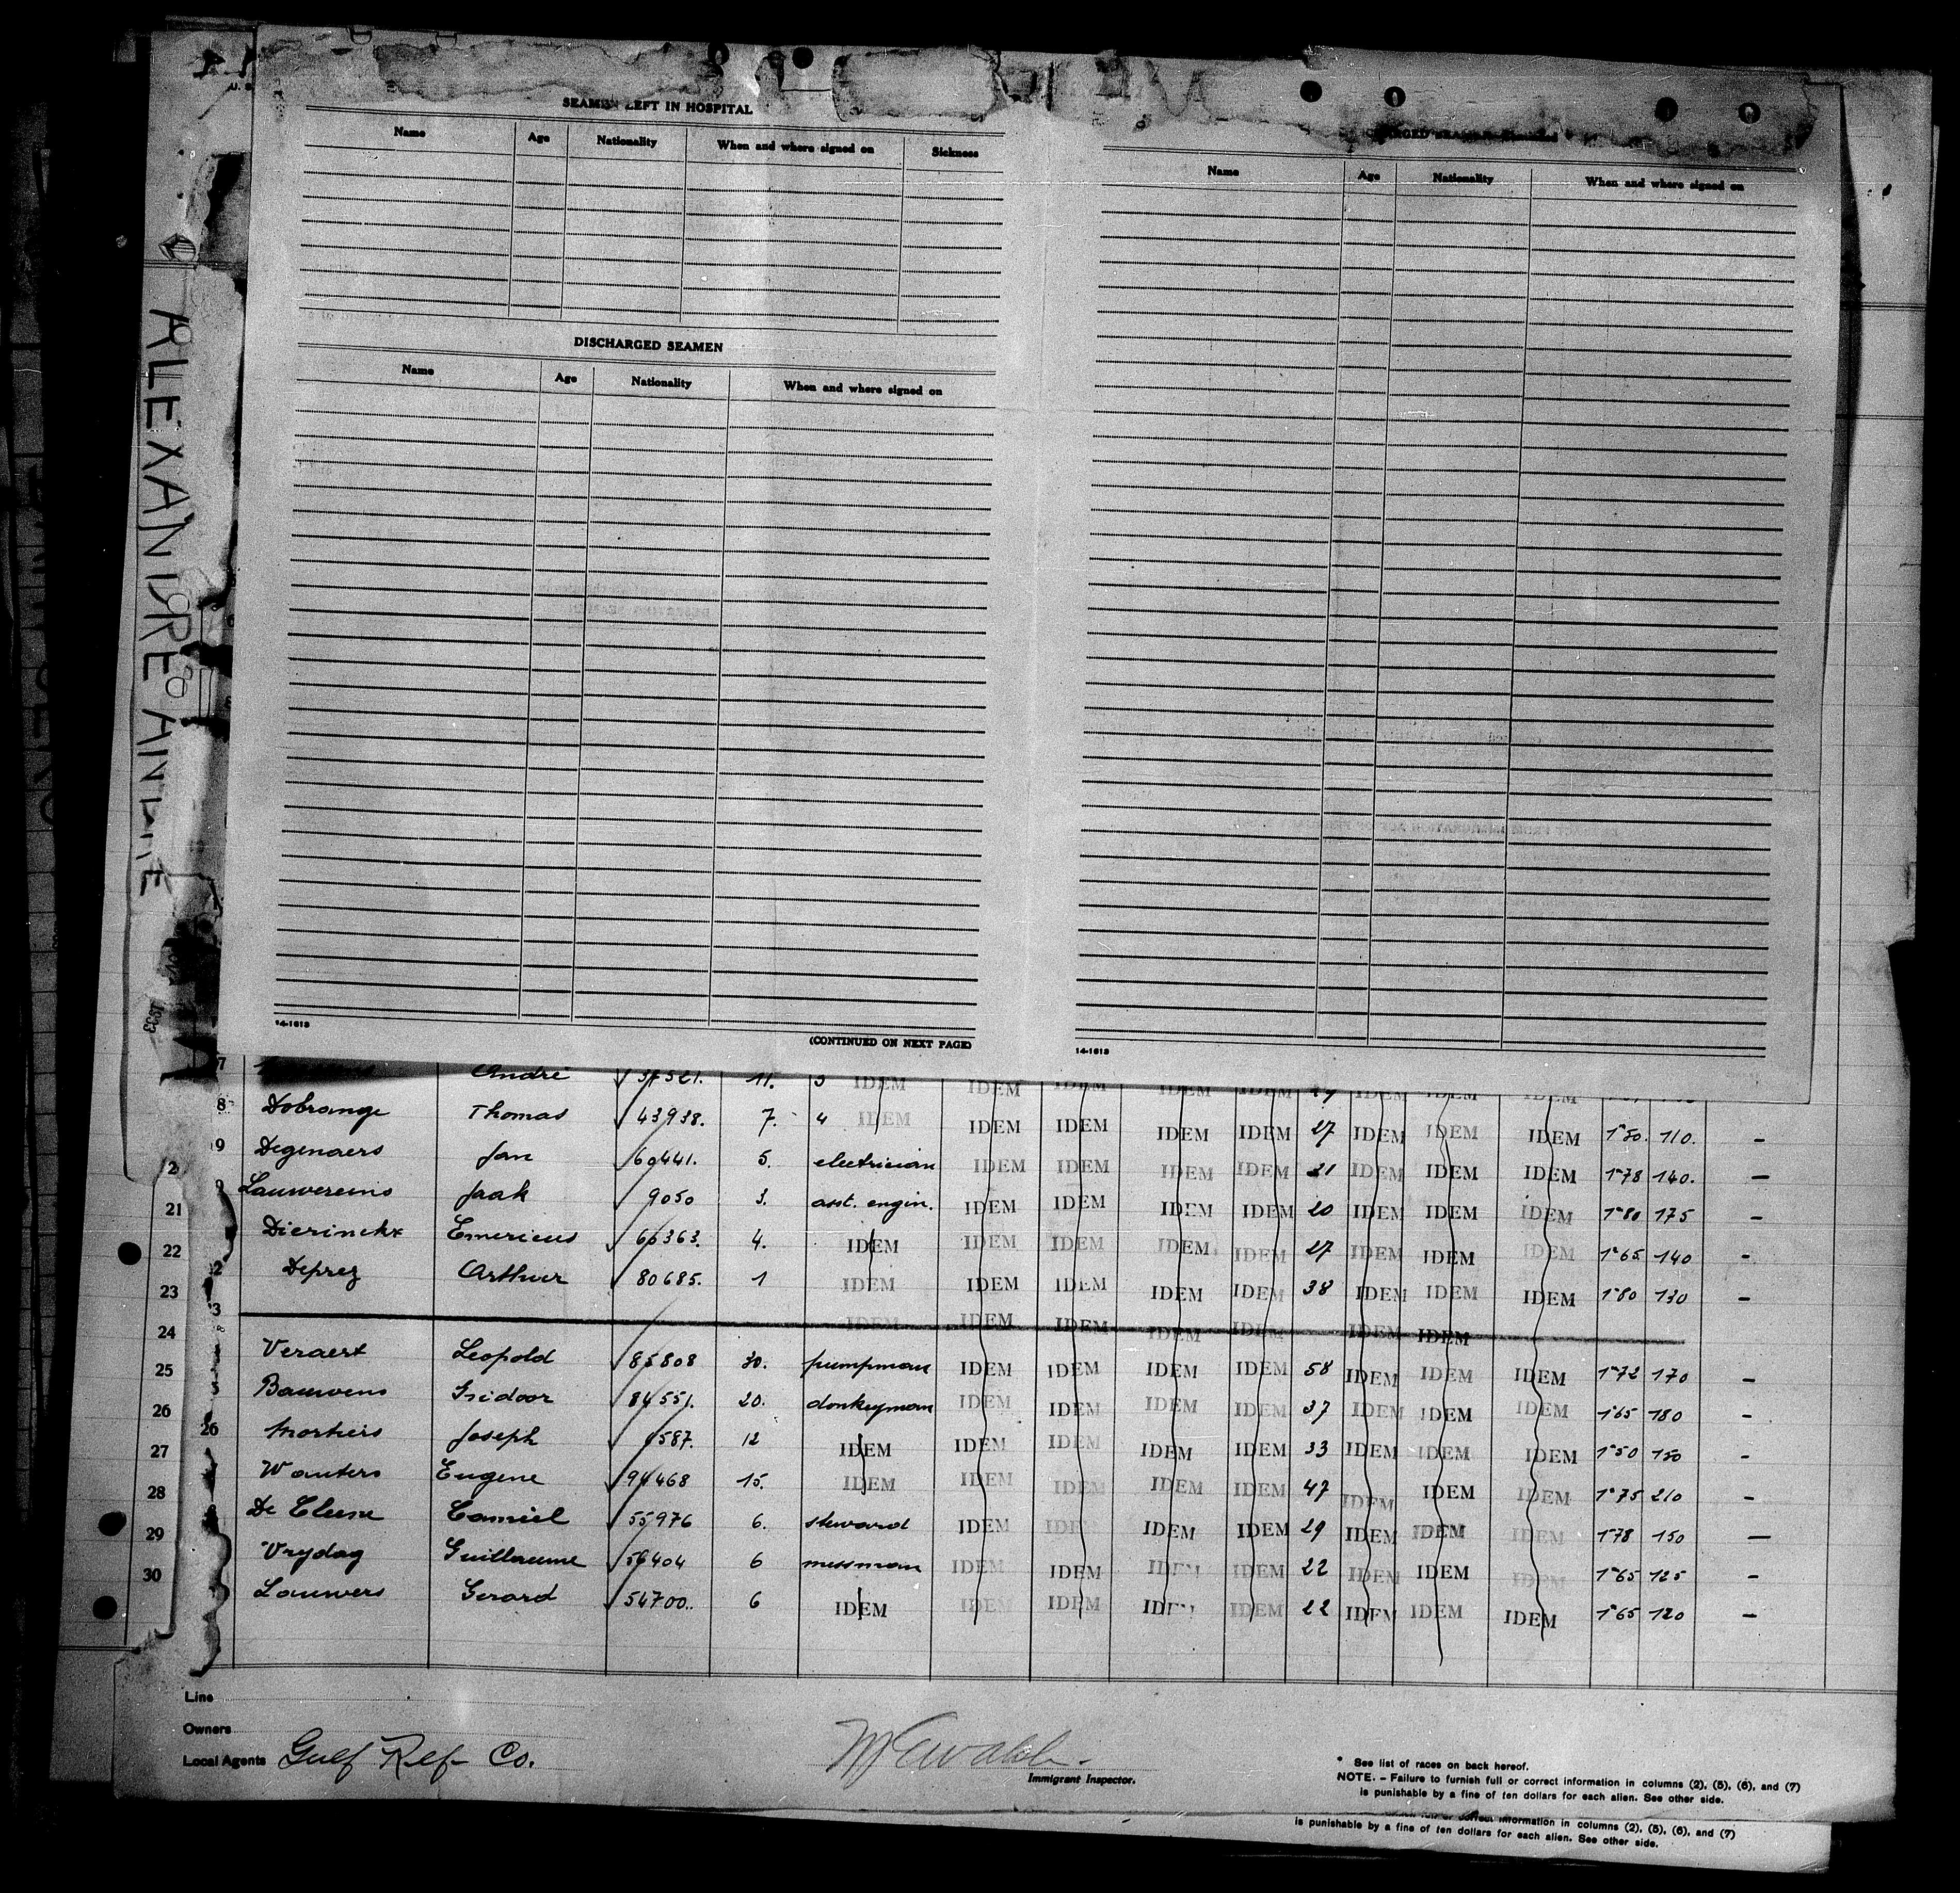 ALEXANDRE ANDRE
SEAMEN LEFT IN HOSPITAL
Name Age Nationality When and where signed on Sickness
DISCHARGED SEAMEN
Name Age Nationality When and where signed on
14-1613
(CONTINUED ON NEXT PAGE)
Name Age Nationality When and where signed on
14-1613
André 11. 3 IDEM IDEM IDEM IDEM IDEM IDEM IDEM IDEM
8 Dobrange Thomas 43938. 7. 4 IDEM IDEM IDEM IDEM IDEM 27 IDEM IDEM IDEM 1"50. 110. —
9 Degenaers Jan 60441. 5. electrician IDEM IDEM IDEM IDEM 21 IDEM IDEM IDEM 1"78 140. —
Lauwereins Jaak 9050 3. asst. engin. IDEM IDEM IDEM IDEM 20 IDEM IDEM IDEM 1"80 175 —
21 Dierinckx Emericus 66363. 4. IDEM IDEM IDEM IDEM IDEM 27 IDEM IDEM IDEM 1"65 140 -
22 Deprez Arthur 80685. 1 IDEM IDEM IDEM IDEM IDEM 38 IDEM IDEM IDEM 1"80 130 —
23 IDEM IDEM IDEM IDEM IDEM IDEM IDEM
24 Veraert Leopold 85808 30. pumpman IDEM IDEM IDEM IDEM 58 IDEM IDEM IDEM 1"72 170 —
25 Bauwens Isidoor 84551. 20. donkeyman IDEM IDEM IDEM IDEM 37 IDEM IDEM IDEM 1"65 180 -
26 Mortiers Joseph 12 IDEM IDEM IDEM IDEM IDEM 33 IDEM IDEM IDEM 1"50 150 -
27 Wauters Eugene 94468 15. IDEM IDEM IDEM IDEM IDEM 47 IDEM IDEM IDEM 1"75 210 -
28 De Cleene Camiel 55976 6. steward IDEM IDEM IDEM IDEM 29 IDEM IDEM IDEM 1"78 150 —
29 Vrydag Guillaume 56404 6 messman IDEM IDEM IDEM IDEM 22 IDEM IDEM IDEM 1"65 125 -
30 Lauwers Gerard 54700. 6 IDEM IDEM IDEM IDEM IDEM 22 IDEM IDEM IDEM 1"65 120 —
Line
Owners
Local Agents Gulf Ref- Co.
Immigrant Inspector.
* See list of races on back hereof.
NOTE. – Failure to furnish full or correct information in columns (2), (5), (6), and (7)
is punishable by a fine of ten dollars for each alien. See other side.
correct information in columns (2), (5), (6), and (7)
is punishable by a fine of ten dollars for each alien. See other side.